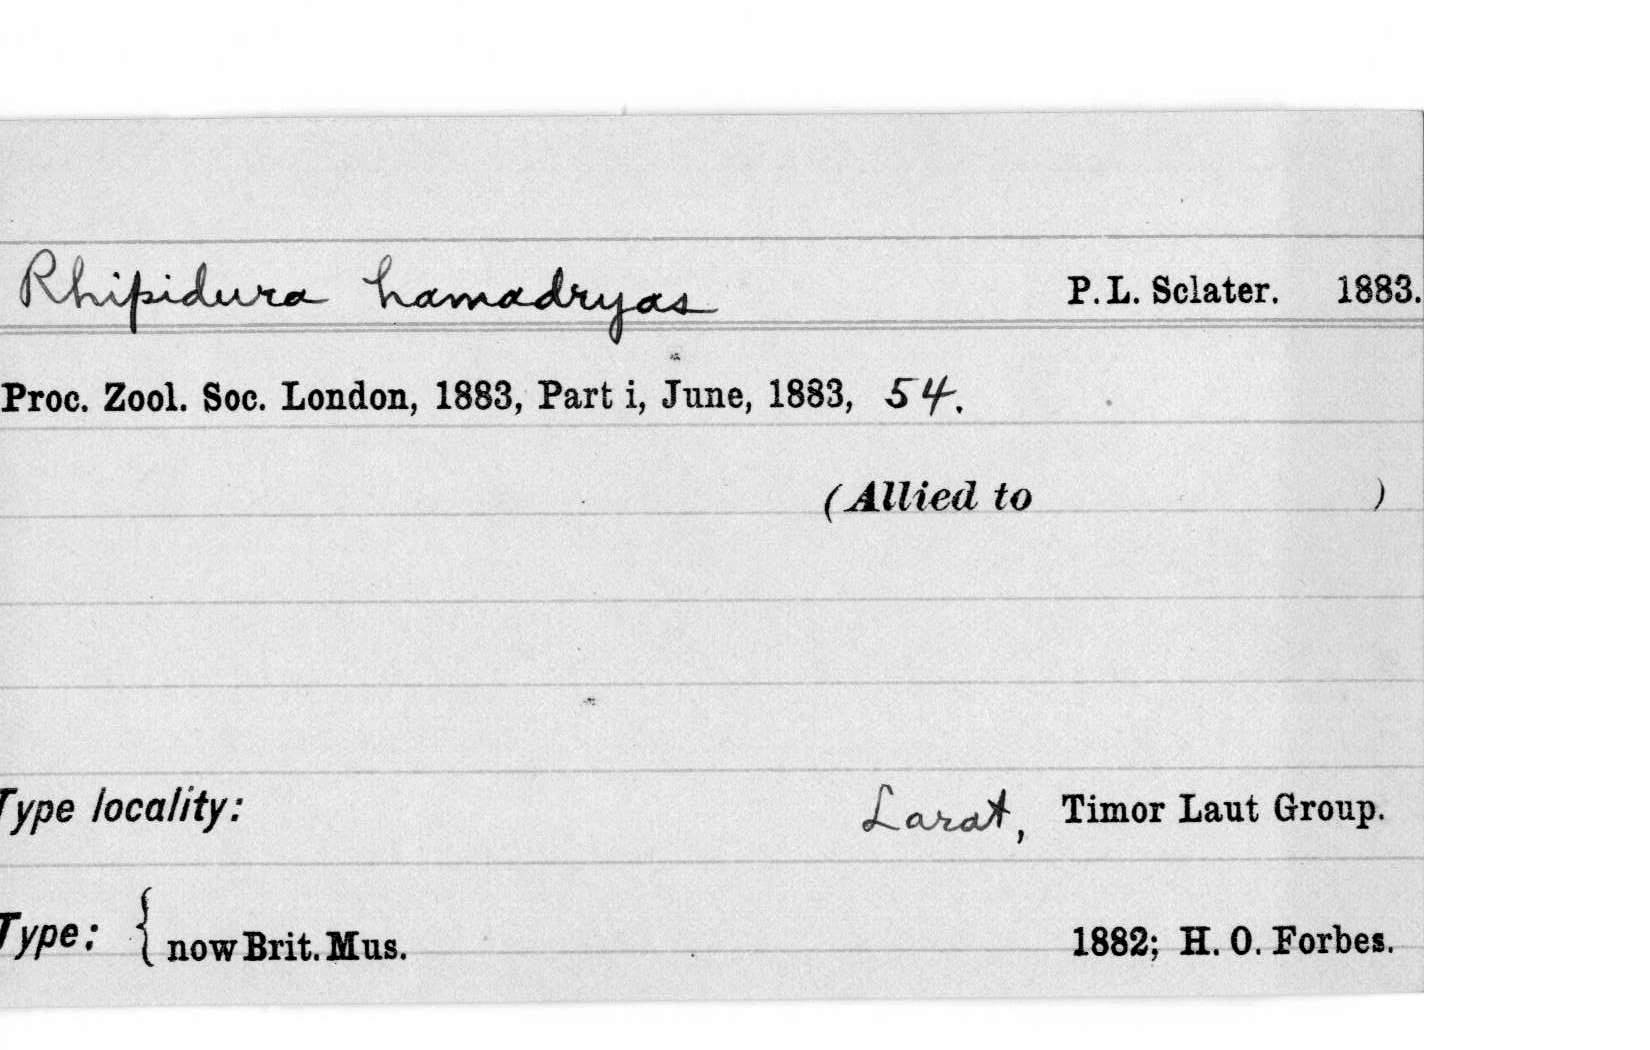 Rhipidura hamadryas P. L. Sclater. 1883.
Proc. Zool. Soc. London, 1883, Part i, June, 1883, 54.
(Allied to )
Type locality: Larat, Timor Laut Group.
Type: { now Brit. Mus. 1882; H. O. Forbes.